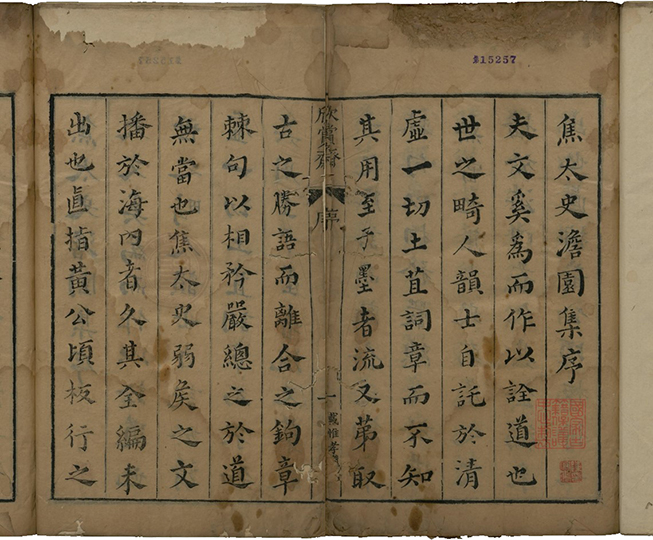 215257
焦太史澹園集序
夫文奚為而作以詮道也
世之畸人韻士自託於清
虛一切土苴詞章而不知
其用至子墨者流又苐取
欣賞齋
序
一
戴惟孝
古之勝語而離合之鉤章
棘句以相矜嚴總之於道
無當也焦太史弱矦之文
播於海內者久其全編未
出也直指黃公頃板行之